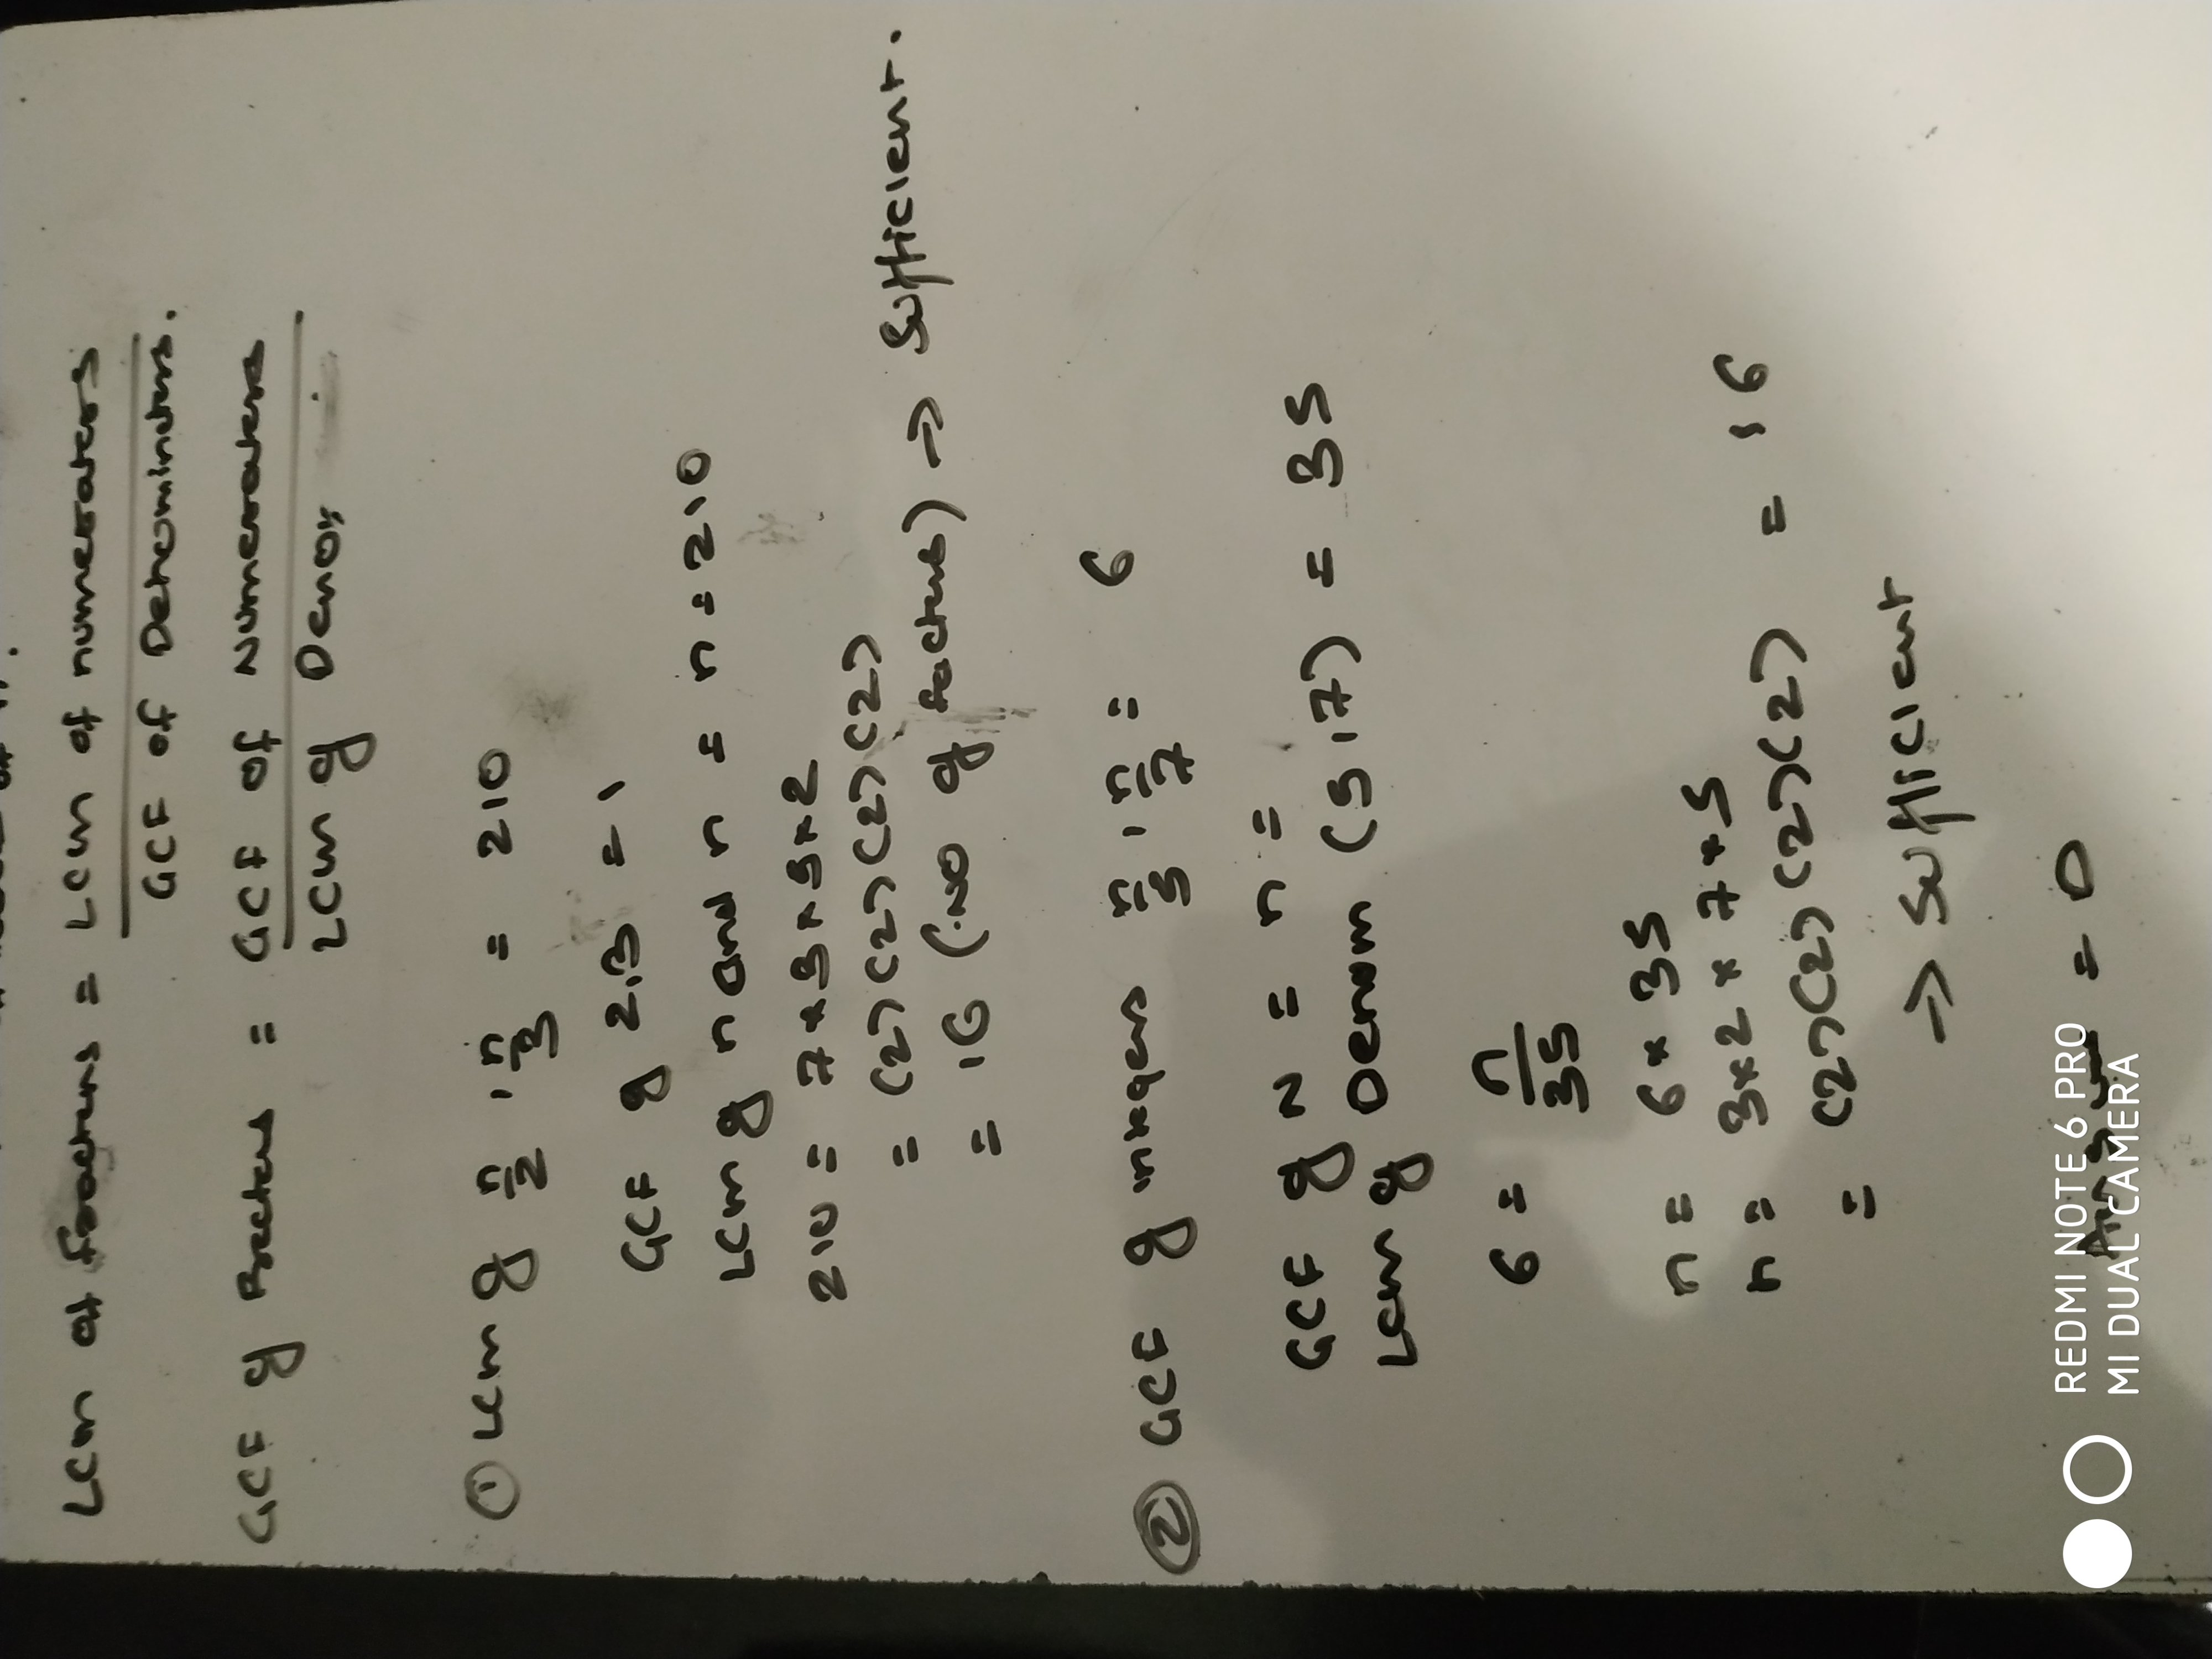 LCM of fractions = LCM of numerators
GCF of Denominators.
GCF of = GCF of Numerators
LCM of Denos.
① LCM of n/2, n/3 = 210
GCF of 2,3 = 1
LCM of n and n = n = 210
210 = 7 × 3 × 5 × 2
= (2)(2)(2)(2)
= 16 (No of factors) → Sufficient.
② GCF of integers n/5, n/7 = 6
GCF of N = n =
LCM of Denom (5,7) = 35
6 = n/35
n = 6 × 35
n = 3×2 × 7 × 5
= (2)(2)(2)(2) = 16
→ Sufficient
= D
REDMI NOTE 6 PRO
MI DUAL CAMERA